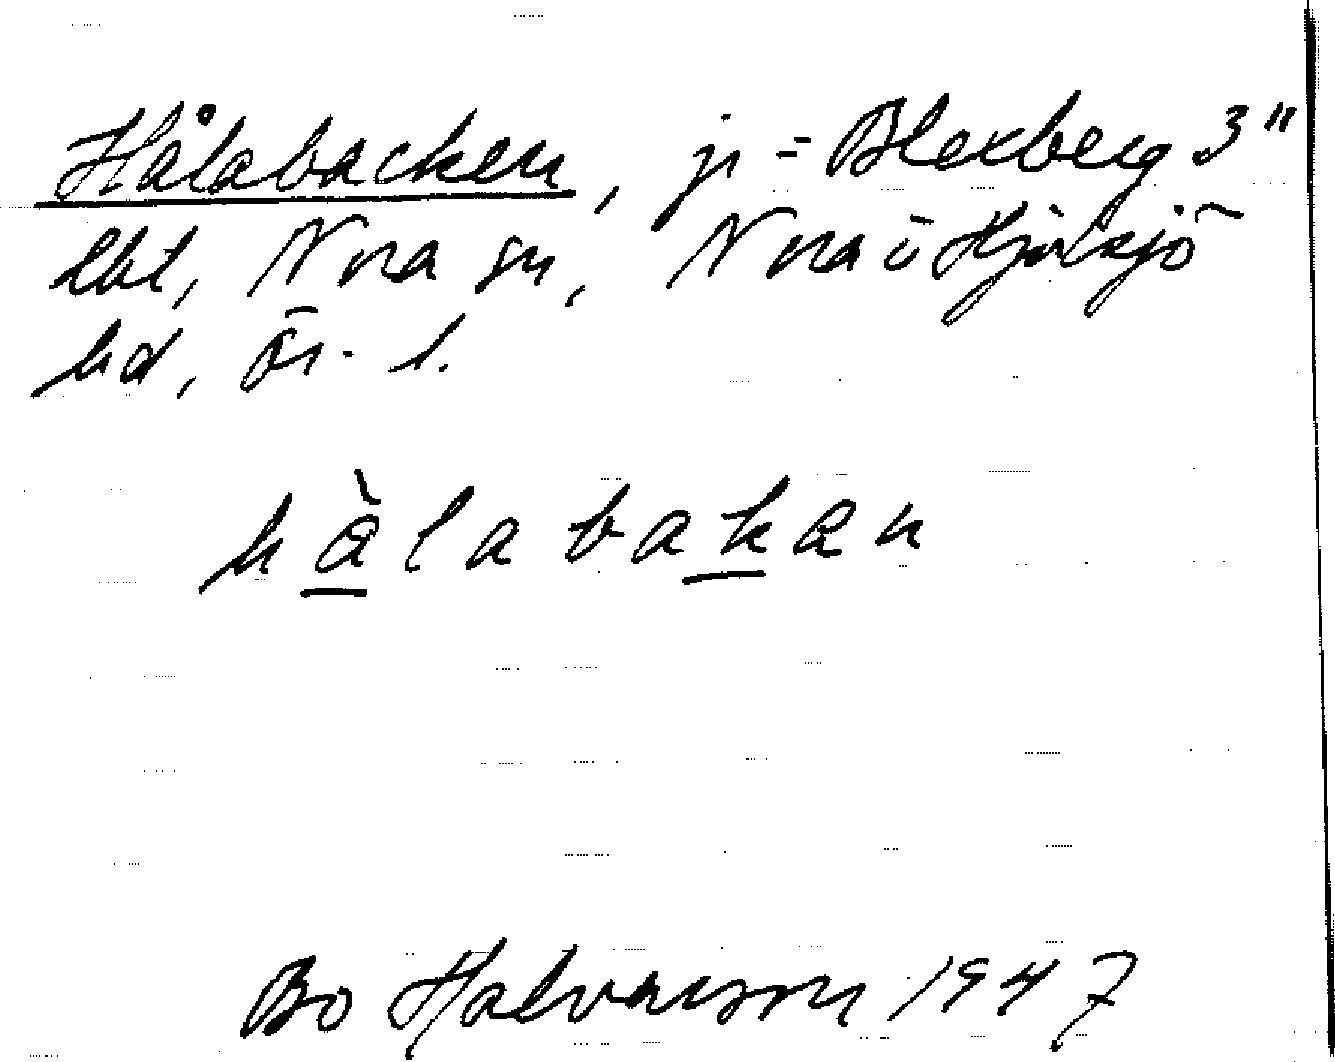 Hålabacken, jr = Blexberg 3"
ebt, Nora sn, Nora o Hjulsjö
bd, Ör. l.
hålabakan
Bo Halvarson 1947